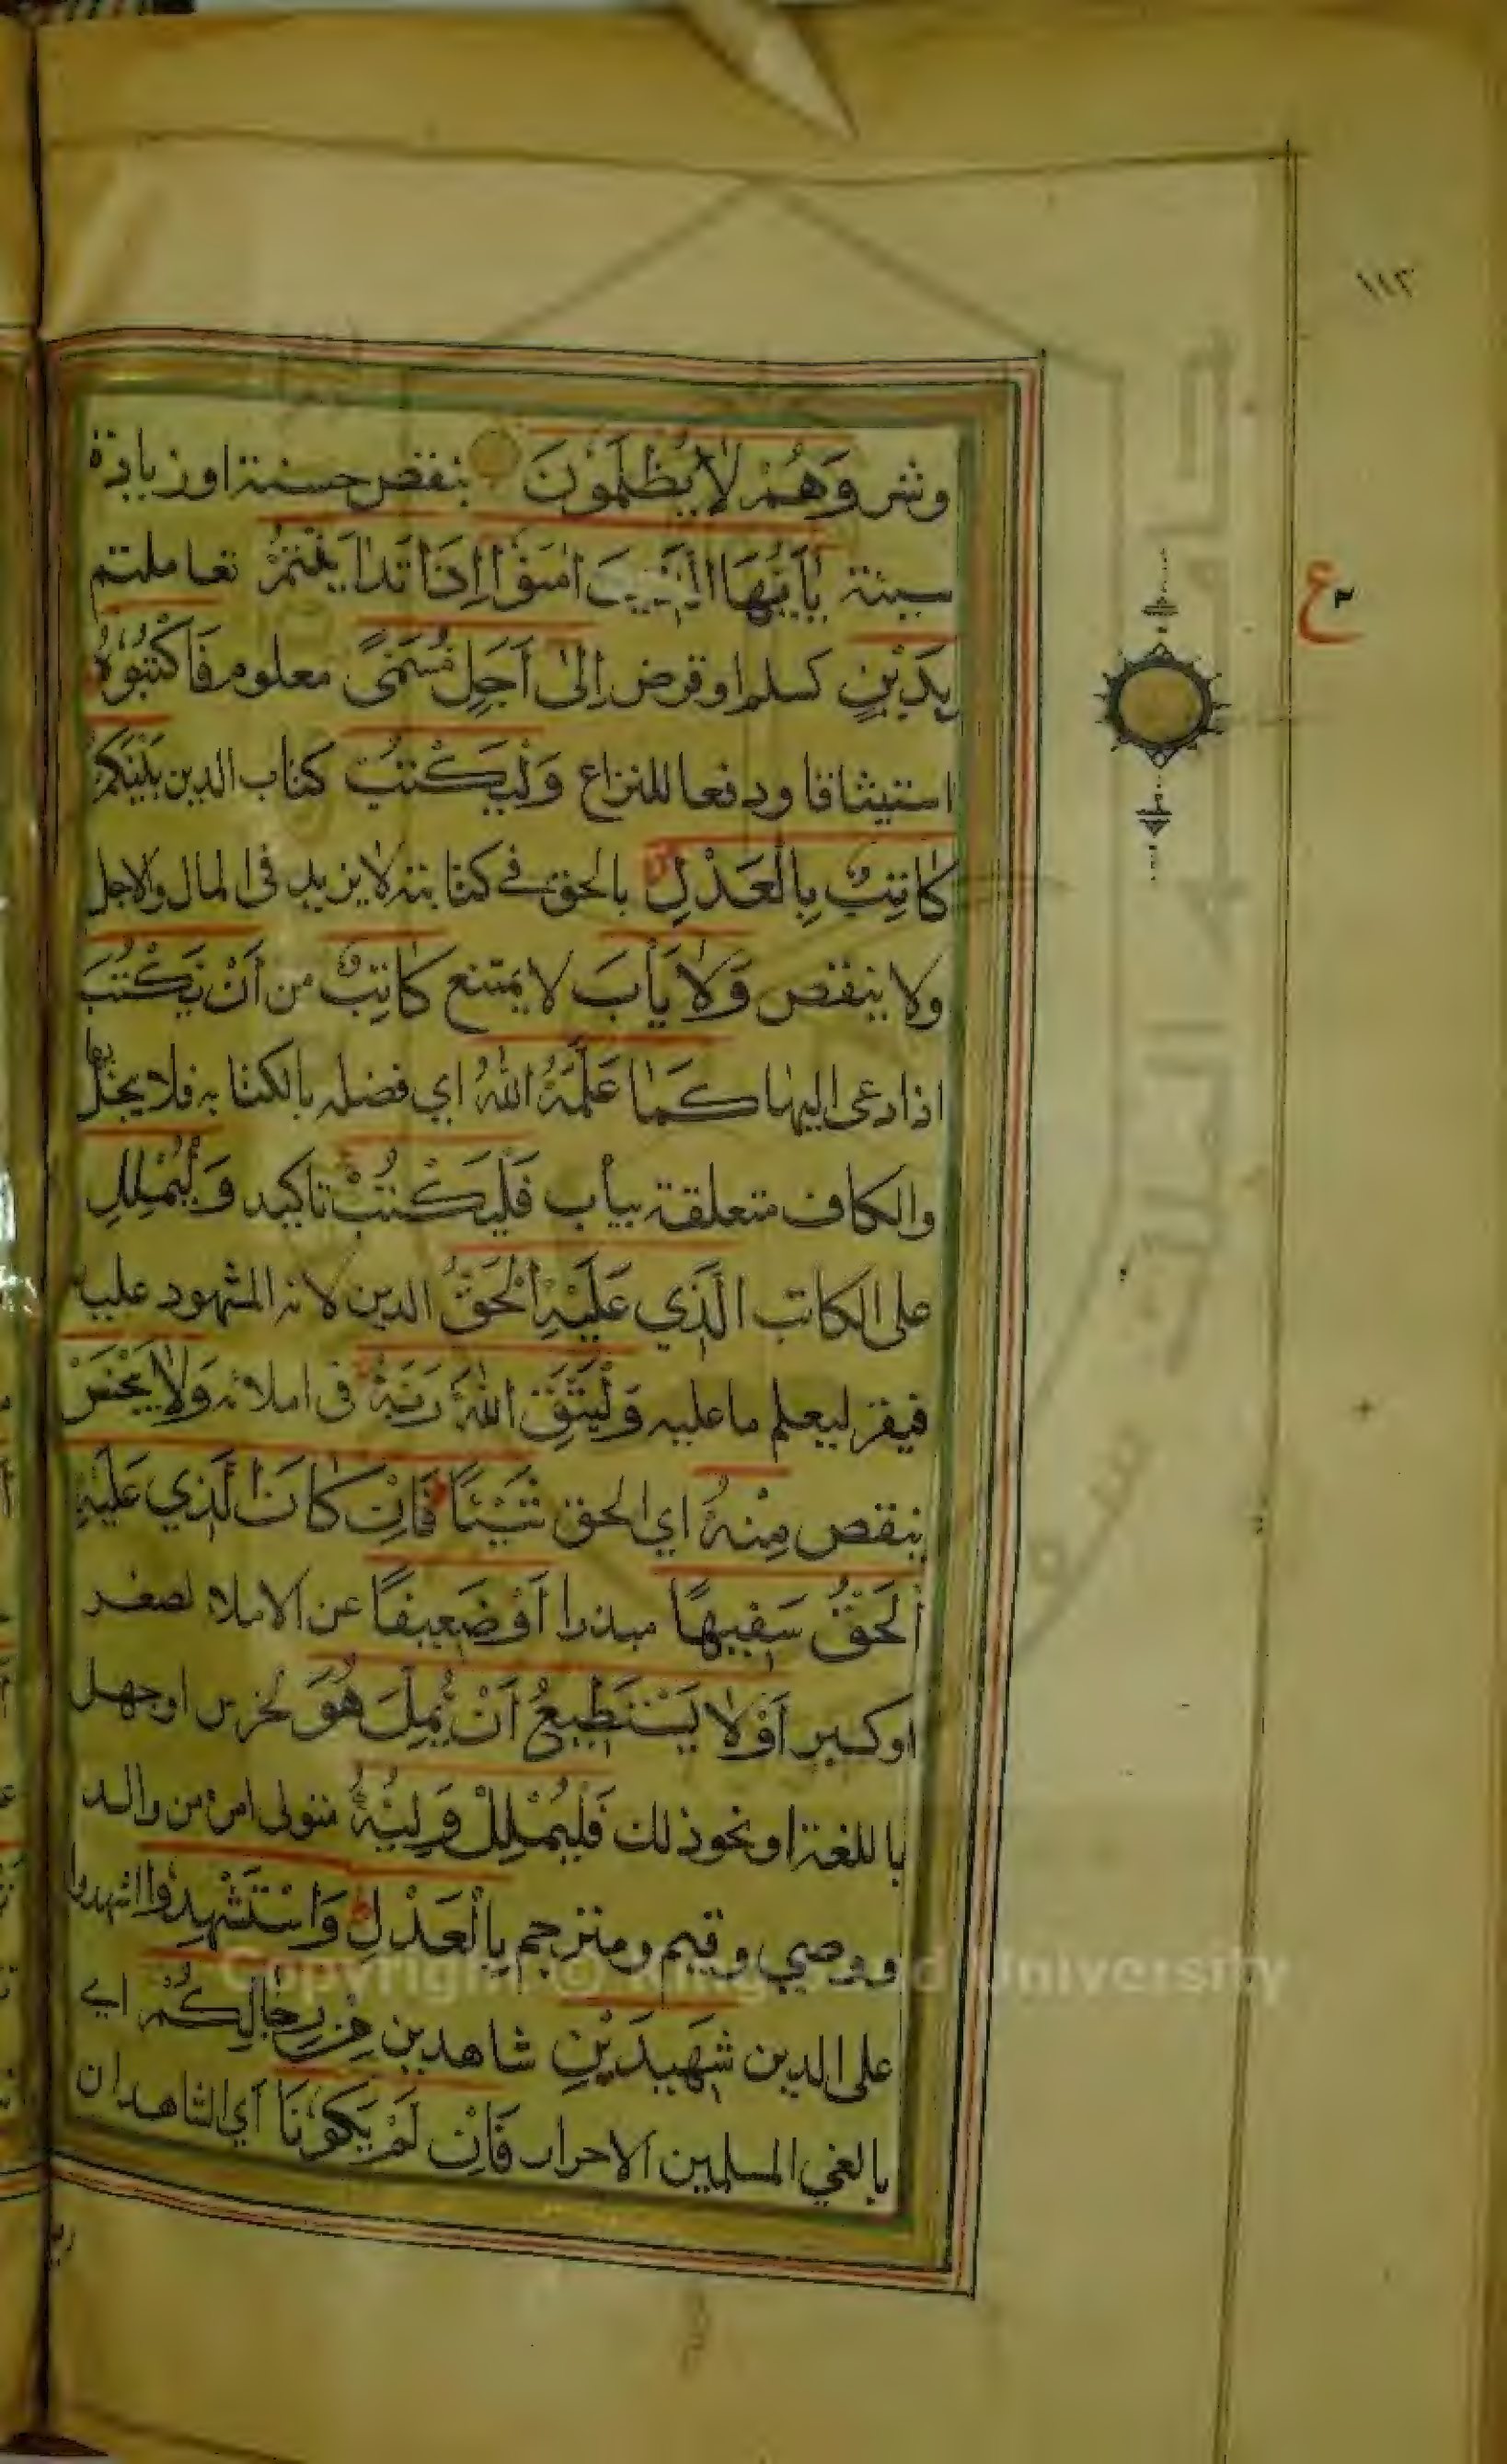 ١١٣
وشر وَهُمْ لَا يُظْلَمُونَ بنقص حسنة او زيادة
سيئة يَا أَيُّهَا الَّذِينَ اٰمَنُوْا اِذَا تَدَايَنْتُمْ تعاملتم
بِدَيْنٍ كسلم او قرض اِلىٰ اَجَلٍ مُسَمًّى معلوم فَاكْتُبُوْهُ
استيثاقا ودفعا للنزاع وَلْيَكْتُبْ كتاب الدين بَيْنَكُمْ
كَاتِبٌ بِالْعَدْلِ بالحق في كتابته لا يزيد في المال والاجل
ولا ينقص وَلَا يَأْبَ لا يمتنع كَاتِبٌ من اَنْ يَكْتُبَ
اذا دعى اليها كَمَا عَلَّمَهُ اللّٰهُ اي فضله بالكتابة فلا يبخل بها
والكاف متعلقة بيأب فَلْيَكْتُبْ تاكيد وَلْيُمْلِلِ
على الكاتب الَّذِي عَلَيْهِ الْحَقُّ الدين لانه المشهود عليه
فيقر ليعلم ما عليه وَلْيَتَّقِ اللّٰهَ رَبَّهُ فى املائه وَلَا يَبْخَسْ
ينقص مِنْهُ اي الحق شَيْئًا فَاِنْ كَانَ الَّذِي عَلَيْهِ
الْحَقُّ سَفِيهًا مبذرا اَوْ ضَعِيفًا عن الاملاء لصغر
اوكبر اَوْ لَا يَسْتَطِيعُ اَنْ يُمِلَّ هُوَ لخرس اوجهل
باللغة او نحو ذلك فَلْيُمْلِلْ وَلِيُّهُ متولى امره من والد
ووصي وقيم ومترجم بِالْعَدْلِ وَاسْتَشْهِدُوا اشهدوا
على الدين شَهِيدَيْنِ شاهدين مِنْ رِجَالِكُمْ اي
بالغي المسلمين الاحرار فَاِنْ لَمْ يَكُوْنَا اي الشاهدان
ع ٢
Copyright © King Saud University